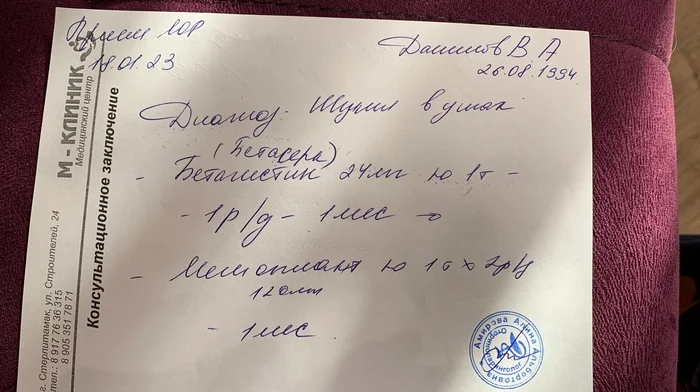 Прием ЛОР
18.01.23
Данилов В А
26.08.1994
М - КЛИНИК
Медицинский центр
Консультационное заключение
г. Стерлитамак, ул. Строителей, 24
тел.: 8 917 76 36 315
8 905 351 78 71
Диагноз: Шум в ушах
(Бетасерк)
- Бетагистин 24мг по 1т -
- 1р/д - 1 мес
- Мемоплант по 1т х 2р/д
120мг
- 1 мес.
Амирова Алина Альбертовна
Оториноларинголог